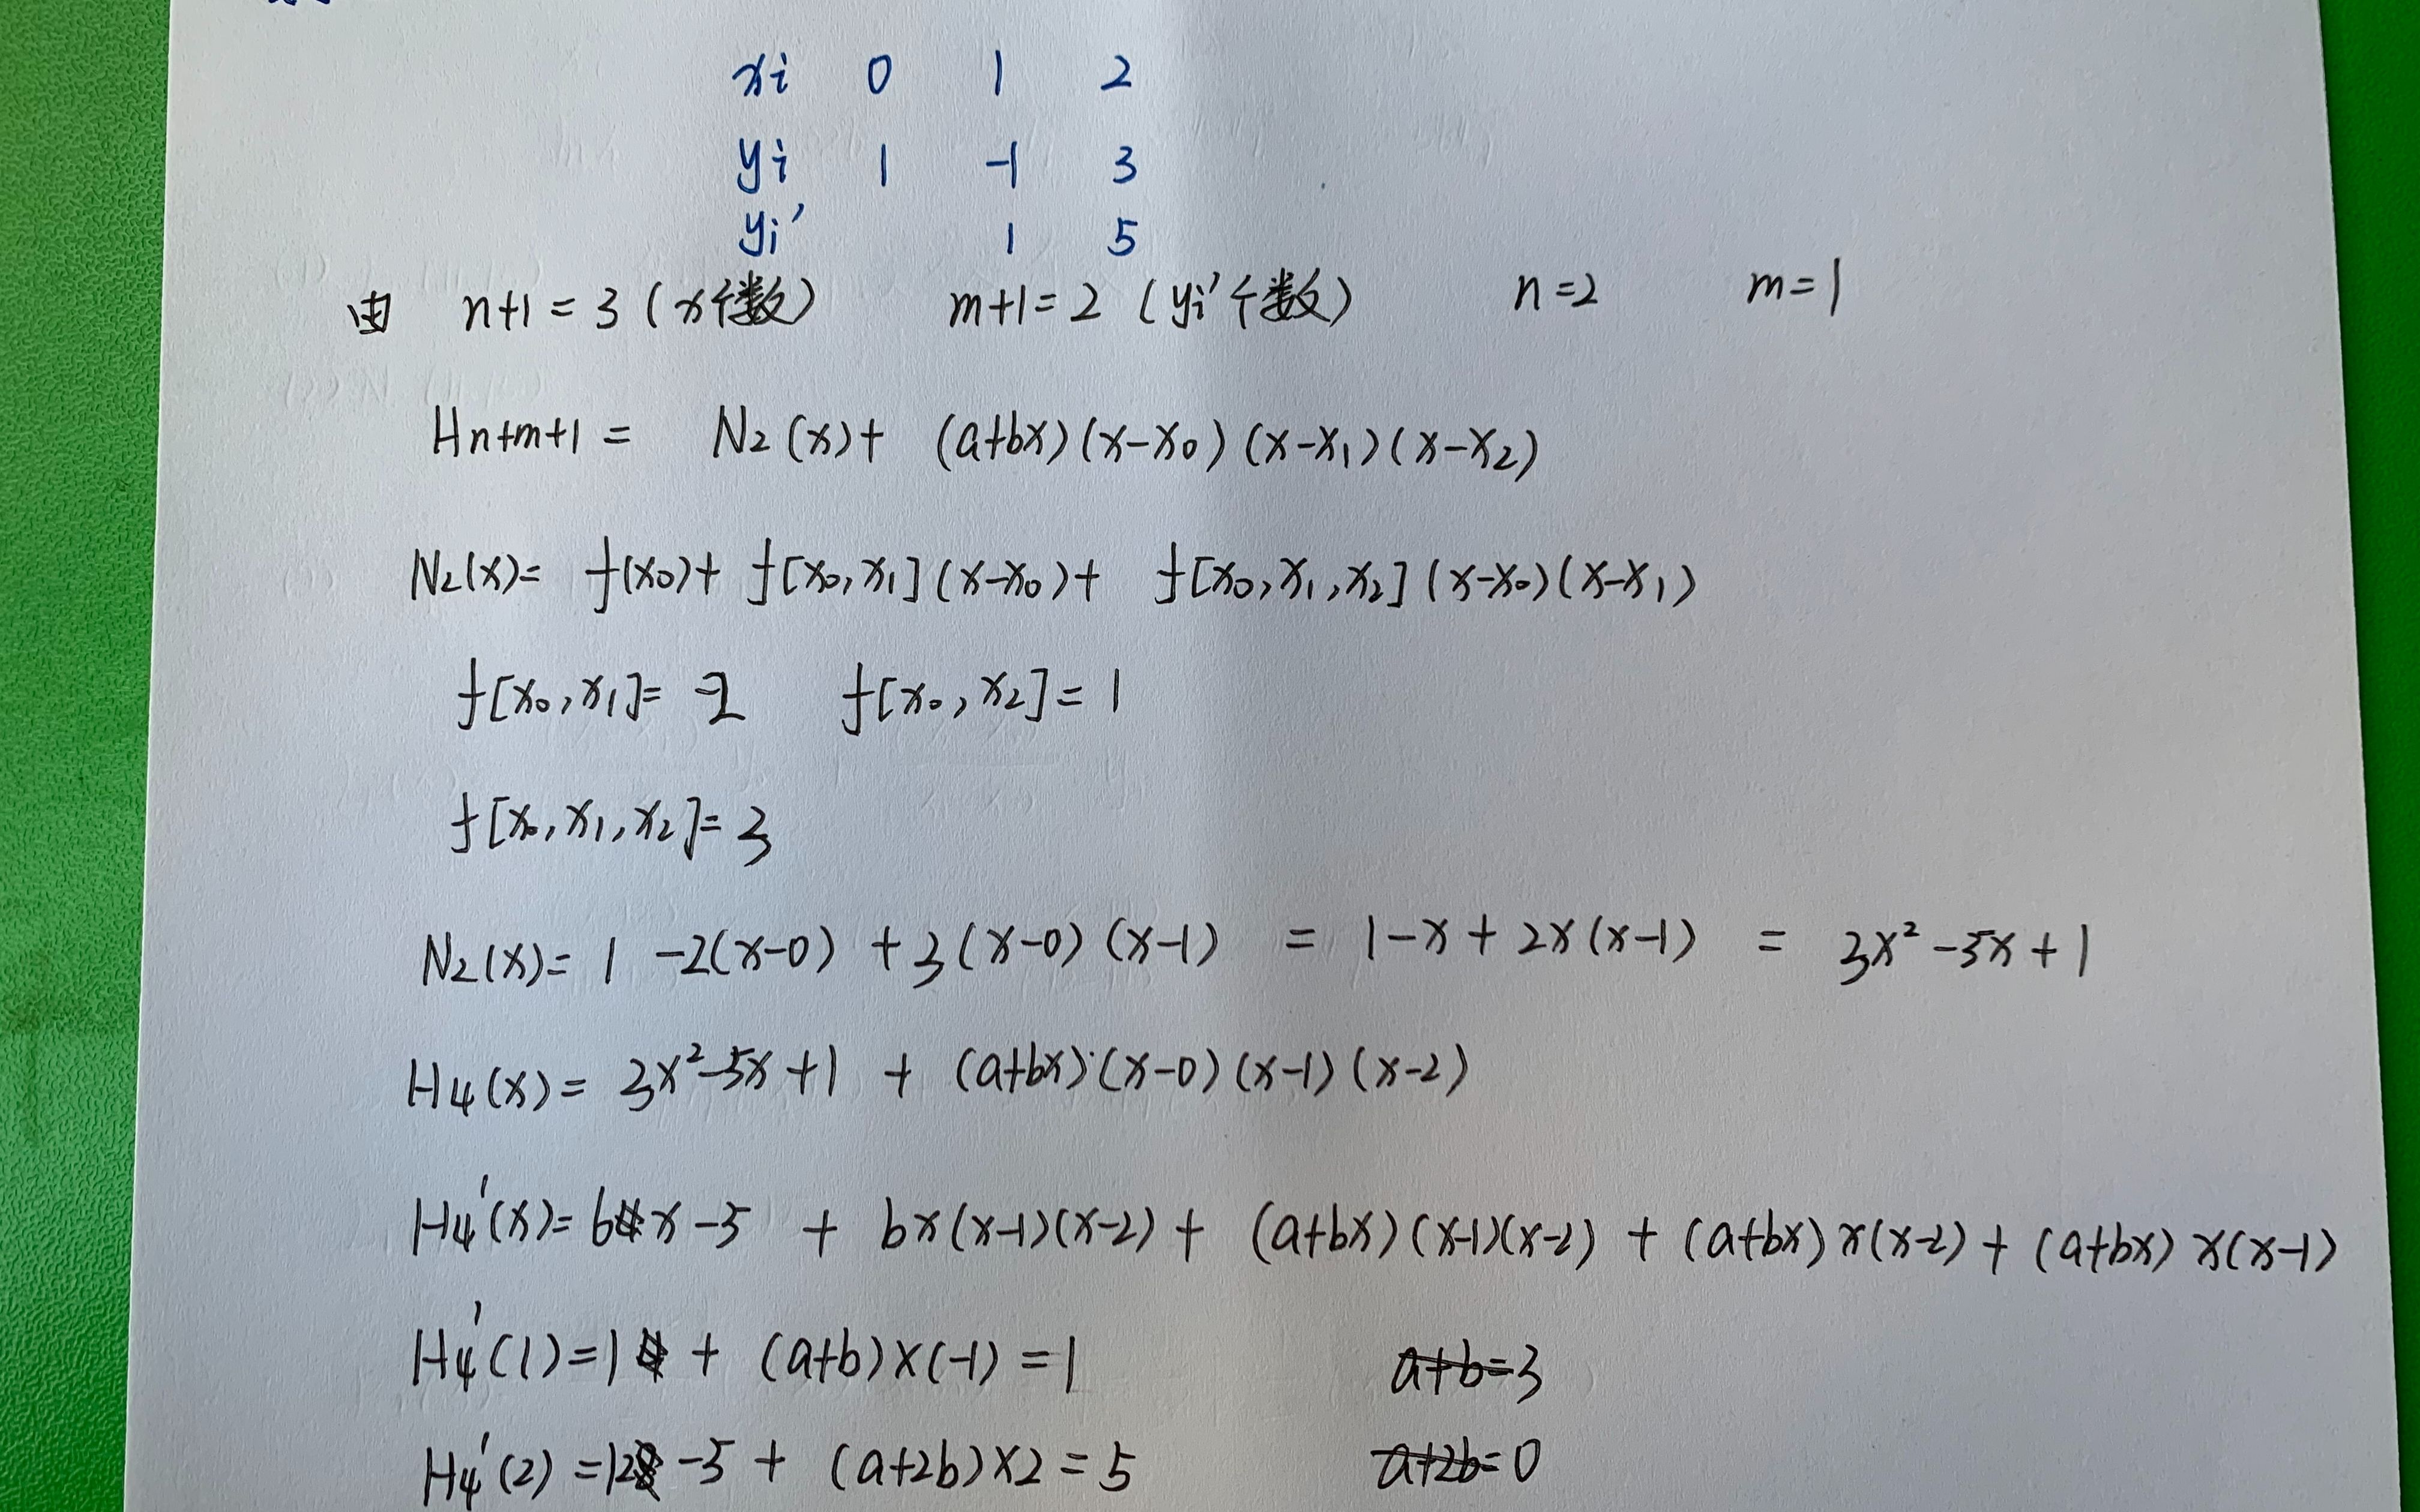 xi 0 1 2
yi 1 -1 3
yi' 1 5
由 n+1=3 (x个数) m+1=2 (yi'个数) n=2 m=1
Hn+m+1 = N2(x)+ (a+bx)(x-x0)(x-x1)(x-x2)
N2(x)= f(x0)+ f[x0,x1](x-x0)+ f[x0,x1,x2](x-x0)(x-x1)
f[x0,x1]= -2 f[x0,x2]=1
f[x0,x1,x2]=3
N2(x)= 1 -2(x-0) +3(x-0)(x-1) = 1-x+2x(x-1) = 3x²-5x+1
H4(x)= 3x²-5x+1 + (a+bx)·(x-0)(x-1)(x-2)
H4'(x)= 6x-5 + bx(x-1)(x-2)+ (a+bx)(x-1)(x-2) + (a+bx)x(x-2)+(a+bx)x(x-1)
H4'(1)=1 + (a+b)×(-1) =1 a+b=3
H4'(2)=12-5+ (a+2b)×2=5 a+2b=0